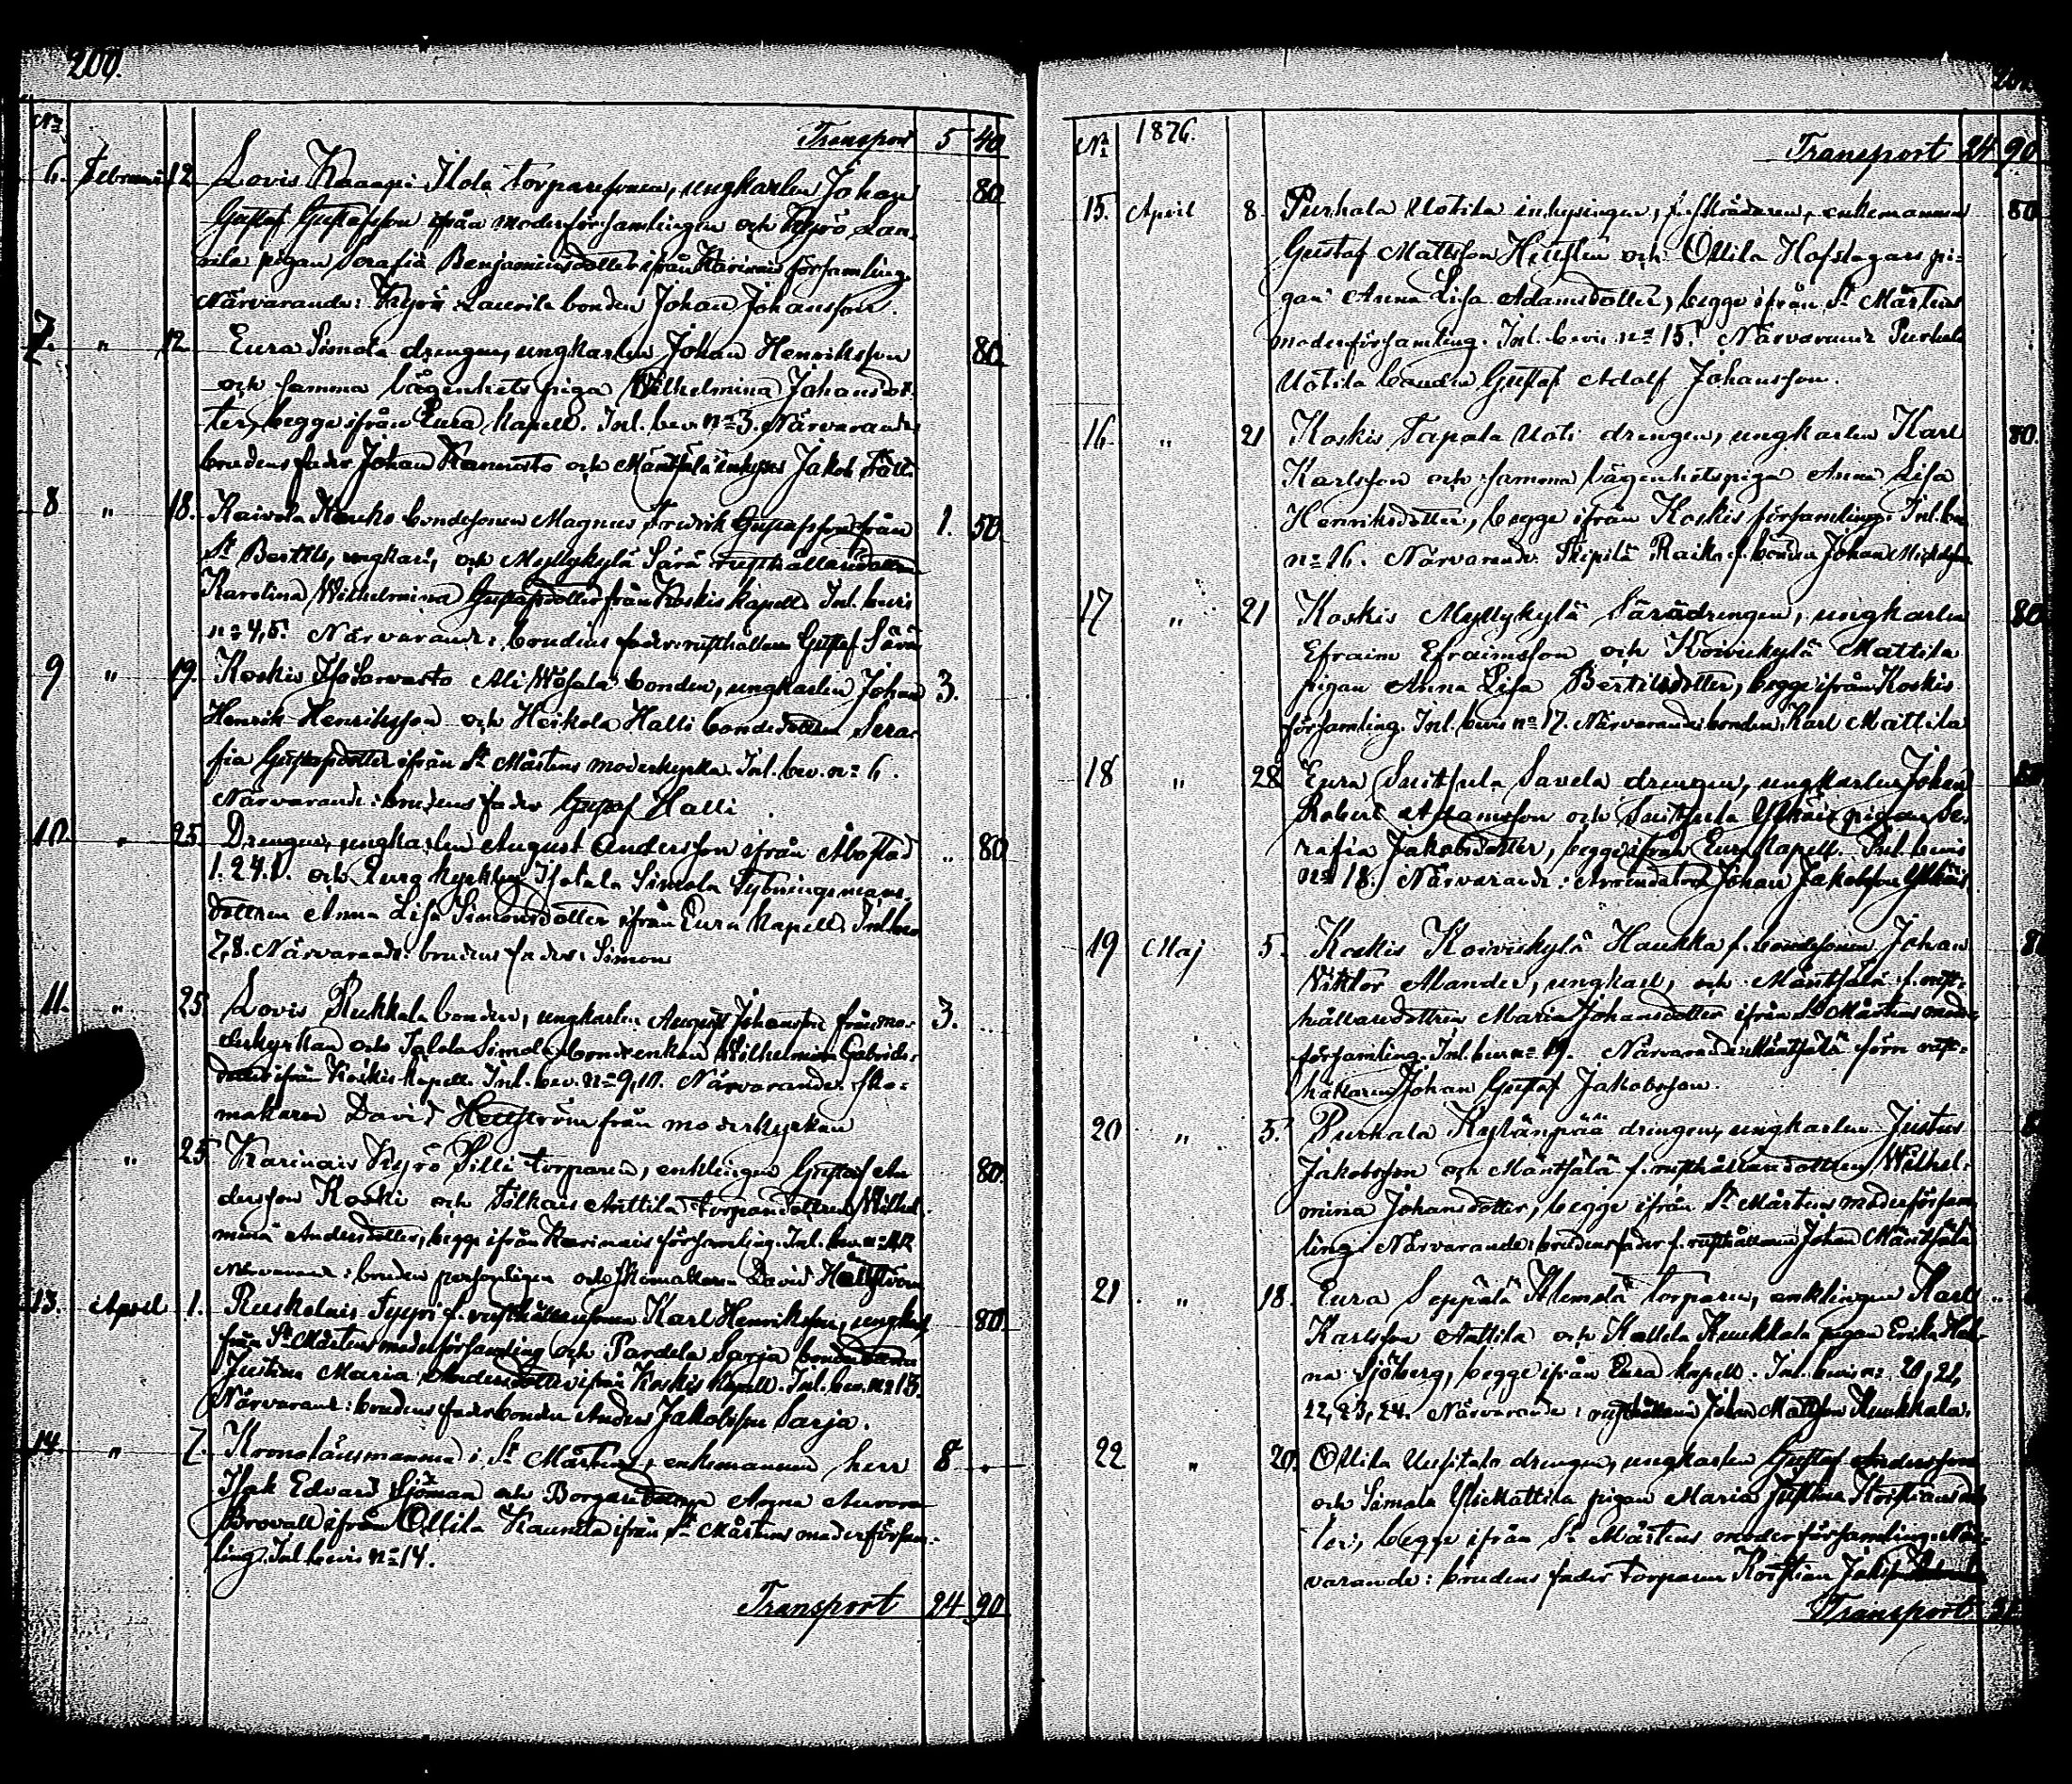 200.
No Transport 5 40
6. Februari 12 Lovis Kaanpi Ilola torparesonen, ungkarlen Johan 80
Gustaf Gustafsson ifrån moderförsamlingen och Kyrö Lau-
rila pigan Serafia Benjaminsdotter ifrån Karinais församling.
Närvarande: Kyrö Laurila bonden Johan Johansson.
7. " 12 Eura Simola drengen, ungkarlen Johan Henriksson 80
och samma lägenhets piga Wilhelmina Johansdot-
ter, begge ifrån Eura kapell. Inl. bev. No 3. Närvarande
brudens fader Johan Kannisto och Mäntsälä inhyses Jakob
8 " 18. Kaivola bondesonen Magnus Fredrik Gustafsson från 1. 50.
St Bertils, ungkarl, och Myllykylä Särä rusthållaredottren
Karolina Wilhelmina Gustafsdotter från Koskis kapell. Inl. bevis
No 4,5. Närvarande: brudens fader rusthållaren Gustaf Särä
9 " 19. Koskis Isosorvasto Ali bonden, ungkarlen Johan 3.
Henrik Henriksson och Heikola Halli bondedottren Sera-
fia Gustafsdotter ifrån St Mårtens moderkyrka. Inl. bev. No 6.
Närvarande: brudens fader Gustaf Halli
10. " 25. Drengen, ungkarlen August Andersson ifrån Åbo stad " 80
och Eura kyrkby Isotalo Simola
dottren Anna Lisa Simonsdotter ifrån Eura kapell. Inl. bev
7,8. Närvarande: brudens fader: Simon
11. " 25. Lovis Rukkala bonden, ungkarlen August Johansson från mo- 3. ..
derkyrkan och Talola Simola bondeenkan Wilhelmina Gabriels-
dotter ifrån Koskis kapell. Inl. bev. No 9,10. Närvarande: sko-
makaren David Hellström från moderkyrkan
" 25 Karinais Kyrö Pilli torparen, enklingen Gustaf An 80.
dersson Koski och Tilkais Anttila torparedottren Wilhel-
mina Andersdotter, begge ifrån Karinais församling. Inl. bev. No 11,12
Närvarande: bruden personligen och skomakaren David Hellström
13. April 1. Ruskolais Tyyri f. rusthållaresonen Karl Henriksson, ungkarl 80
från St Mårtens moderförsamling och Partela Sarja bondedottren
Justina Maria Andersdotter ifrån Koskis kapell. Inl. bev. No 13.
Närvarand: brudens fader bonden Anders Jakobsson Sarja.
14. " 7. Kronolänsmannen i St Mårtens, enkemannen herr 8 .
Isak Edvard Sjöman och Borgaredottren Anna Aurora
Brovall ifrån Ollila Kaunela ifrån St Mårtens moderförsam-
ling. Inl. bevis No 14.
Transport 24 90
No 1876. Transport 24 90
15. April 8 Purhala Uotila inhysingen, f. skräddaren, enkemannen 80
Gustaf Mattsson Hellsten och Ollila Hofslagars pi-
gan Anna Lisa Adamsdotter, begge ifrån St Mårtens
moderförsamling. Inl. bevis No 15. Närvarande Purhala
Uotila bonden Gustaf Adolf Johansson.
16 " 21 Koskis Tapala Uoti drengen, ungkarlen Karl 80.
Karlsson och samma lägenhetspiga Anna Lisa
Henriksdotter, begge ifrån Koskis församling. Inl. bev
No 16. Närvarande: Raiko f. bonden Johan Mickelsson
17 " 21 Koskis Myllykylä Särädrengen, ungkarlen 80
Efraim Efraimsson och Koivukylä Mattila
pigan Anna Lisa Bertilsdotter, begge ifrån Koskis
församling. Inl. bevis No 17. Närvarande: bonden Karl Mattila
18 " 28 Eura Suitsula Savela drengen, ungkarlen Johan 80
Robert Adamsson och Suitsula pigan Se-
rafia Jakobsdotter, begge ifrån Eura kapell. Inl. bevis
No 18. Närvarande: Arrendatorn Johan Jakobsson
19 Maj 5. Koskis Koivukylä Haukka f. bondesonen Johan 80
Viktor Alander, ungkarl, och Mäntsälä f. rust-
hållaredottren Maria Johansdotter ifrån St Mårtens moder-
församling. Inl. bev. No 19. Närvarande: Mäntsälä förn rust-
hållaren Johan Gustaf Jakobsson.
20 " 5. Purhala Kylänpää drengen, ungkarlen Justus
Jakobsson och Mäntsälä f. rusthållaredottren Wilhel-
mina Johansdotter, begge ifrån St Mårtens moderförsam-
ling. Närvarande: brudens fader f. rusthållaren Johan Mäntsälä
21 " 18. Eura Seppälä Alemylä torparen, enklingen Karl
Karlsson Anttila och Kallela Kuukkala pigan Erika Hele-
na Sjöberg, begge ifrån Eura kapell. Inl. bevis No 20, 21,
22, 23, 24. Närvarande: rusthållaren Johan Mattsson Kuukkala.
22 " 20. Ollila Uusitalo drengen, ungkarlen Gustaf Andersson
och Simola pigan Maria Justina Kristiansdot-
ter, begge ifrån St Mårtens moderförsamling. När-
varande: brudens fader torparen Kristian
Transport